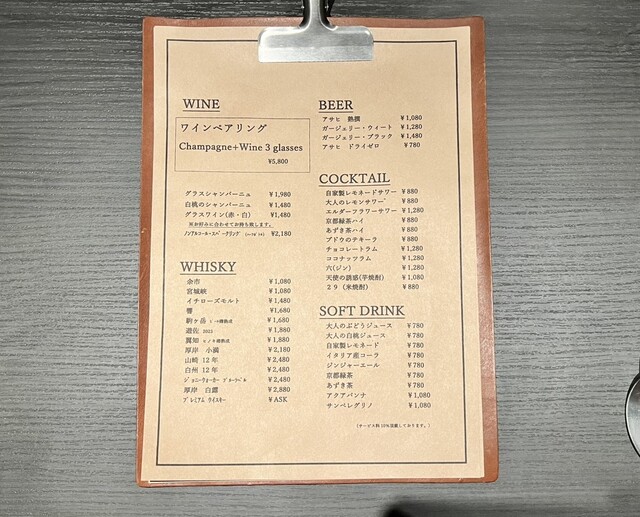 WINE
ワインペアリング
Champagne+Wine 3 glasses
¥5,800
グラスシャンパーニュ ¥1,980
白桃のシャンパーニュ ¥1,480
グラスワイン(赤・白) ¥1,480
※お好みに合わせてお持ち致します。
ノンアルコールスパークリング ¥2,180
WHISKY
余市 ¥1,080
宮城峡 ¥1,080
イチローズモルト ¥1,480
響 ¥1,680
駒ヶ岳 ¥1,680
遊佐 2022 ¥1,880
翼知 ¥1,880
厚岸 小満 ¥2,180
山崎 12年 ¥2,480
白州 12年 ¥2,480
ジョニーウォーカー ブルーラベル ¥2,480
厚岸 白露 ¥2,880
プレミアム ウイスキー ¥ASK
BEER
アサヒ 熟撰 ¥1,080
ガージェリー・ウィート ¥1,280
ガージェリー・ブラック ¥1,480
アサヒ ドライゼロ ¥780
COCKTAIL
自家製レモネードサワー ¥880
大人のレモンサワー ¥880
エルダーフラワーサワー ¥1,280
京都緑茶ハイ ¥880
あずき茶ハイ ¥880
ブドウのテキーラ ¥880
チョコレートラム ¥1,280
ココナッツラム ¥1,280
六(ジン) ¥1,280
天使の誘惑(芋焼酎) ¥1,080
29 (米焼酎) ¥880
SOFT DRINK
大人のぶどうジュース ¥780
大人の白桃ジュース ¥780
自家製レモネード ¥780
イタリア産コーラ ¥780
ジンジャーエール ¥780
京都緑茶 ¥780
あずき茶 ¥780
アクアパンナ ¥1,080
サンペレグリノ ¥1,080
(サービス料10%頂戴しております。)